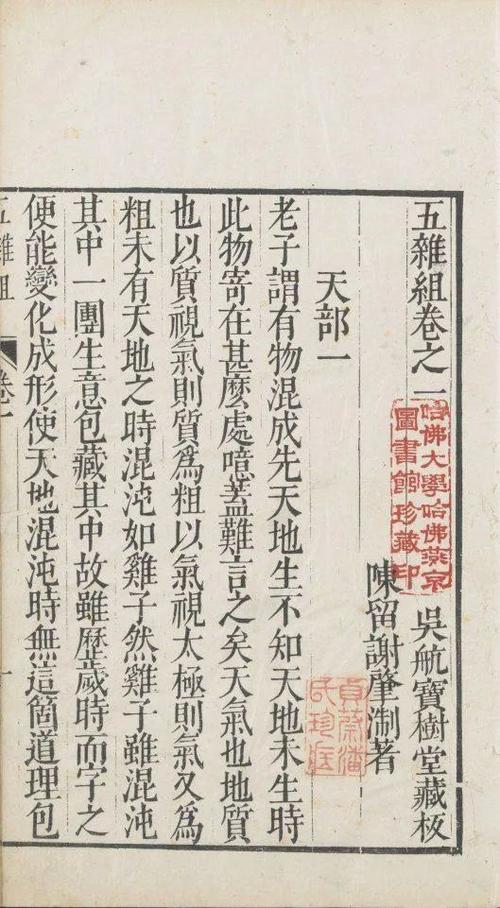 五雜組卷之一
吳航寶樹堂藏板
哈佛大學哈佛燕京
圖書館珍藏印
陳留謝肇淛著
天部一
老子謂有物混成先天地生不知天地未生時
此物寄在甚麼處噫蓋難言之矣天氣也地質
也以質視氣則質爲粗以氣視太極則氣又爲
粗未有天地之時混沌如雞子然雞子雖混沌
其中一團生意包藏其中故雖歷歲時而字之
便能變化成形使天地混沌時無這箇道理包
五雜組
卷一
一